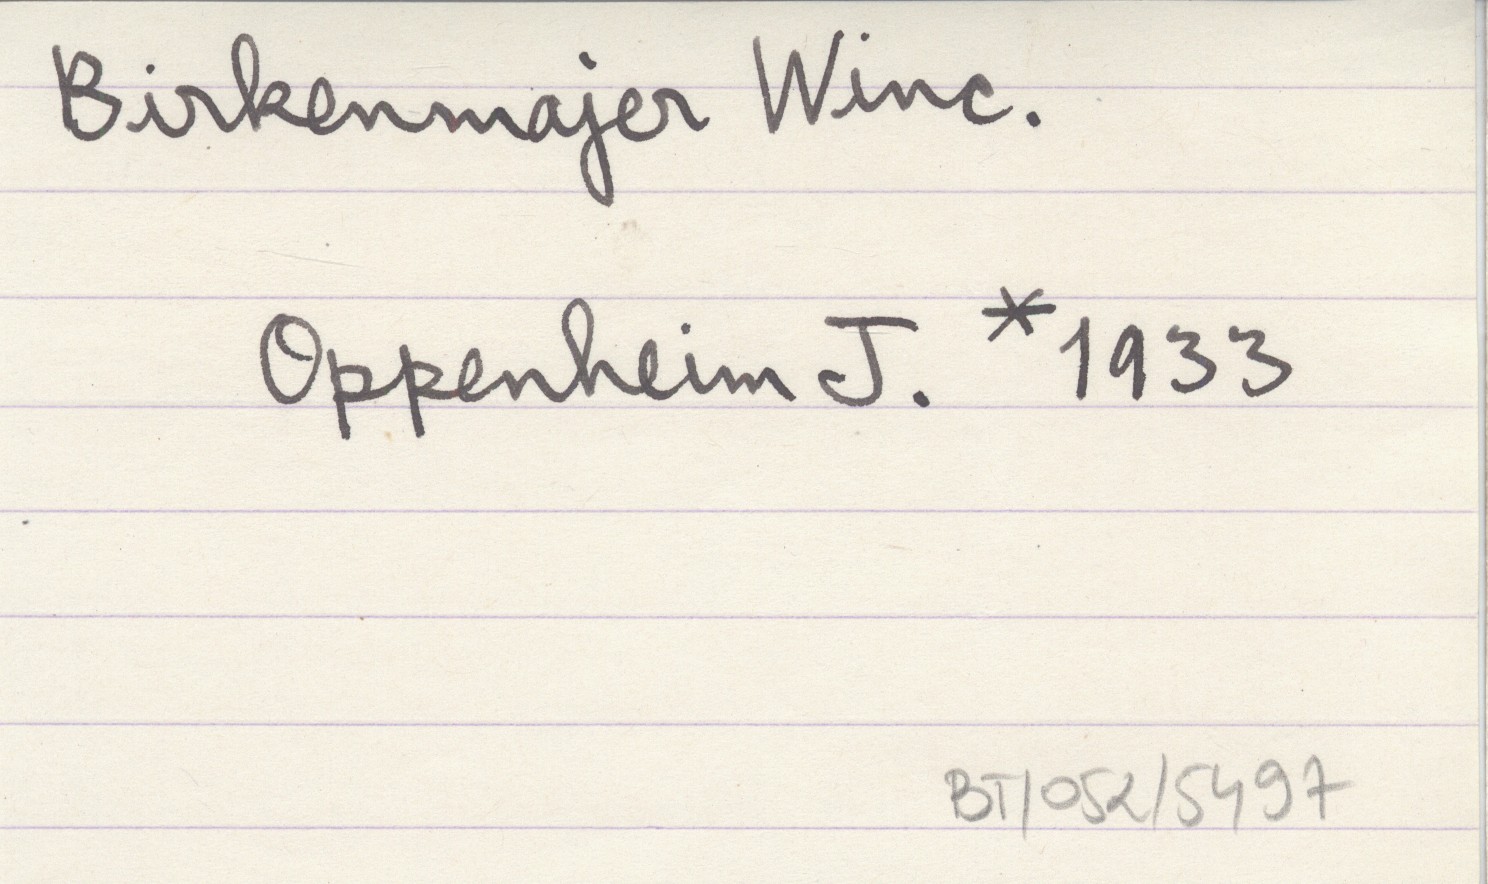 Birkenmajer Winc.
Oppenheim J. *1933
BT/052/5497